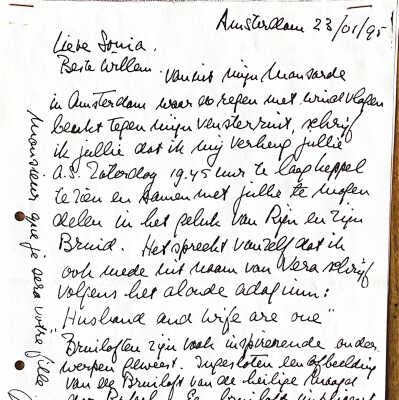 Amsterdam 23/01/95
Lieve Sonia.
Beste Willem.
Vanuit mijn Mansarde
in Amsterdam waar de regen met windvlagen
beukt tegen mijn vensterruit, schrijf
ik jullie dat ik mij verheug jullie
a.s. Zaterdag 19.45 uur te laag keppel
te zien en samen met jullie te mogen
delen in het geluk van Rijn en zijn
Bruid. Het spreekt vanzelf dat ik
ook mede uit naam van Vera schrijf
volgens het aloude adagium:
"Husband and wife are one"
Bruiloften zijn vaak inspirerende onder
werpen geweest. Ingesloten een afbeelding
van de Bruiloft van de heilige Maagd
Een bruiloft
Monsieur que je sera votre fille